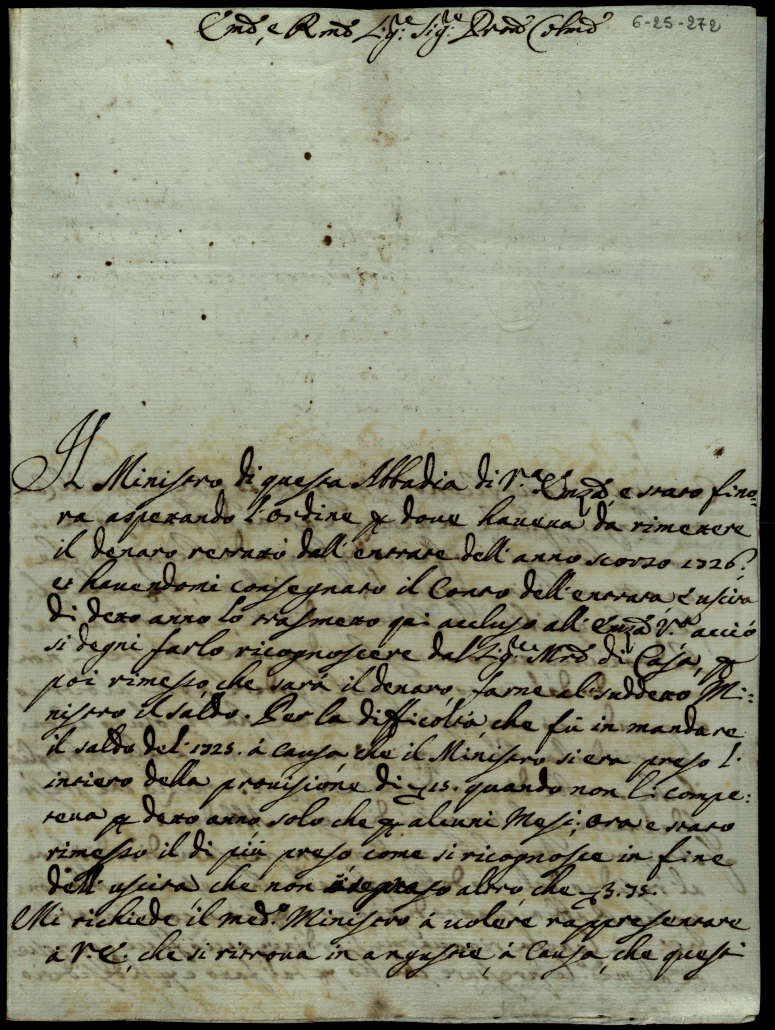 6-25-272
Emo, e Rmo Sig:re Sig:re Pron Colmo
Il Ministro di questa Abbadia di V.a Emza, e stato fino=
ra aspettando l'ordine p dove haveva da rimettere
il denaro retratto dall'entrate dell'anno scorso 1726.
et havendomi consegnato il Conto dell'entrata, è uscita
di detto anno lo trasmetto qui accluso all'Emza V.ra acciò
si degni farlo ricognoscere dal Sig:re Mro di Casa, p
poi rimesso, che sarà il denaro, farne al suddetto Mi=
nistro il saldo. Per la difficoltà, che fù in mandare
il saldo del 1725. à causa, che il Ministro si era preso l'
intiero della provisione di 15. quando non li compe=
teva p detto anno solo che p alcuni Mesi; ora e stato
rimesso il di più preso come si ricognosce in fine
dell'uscita che non altro che 3.75.
Mi richiede il med.o Ministro à volere rappresentare
à V.E., che si ritrova in angustie, à Causa, che questi